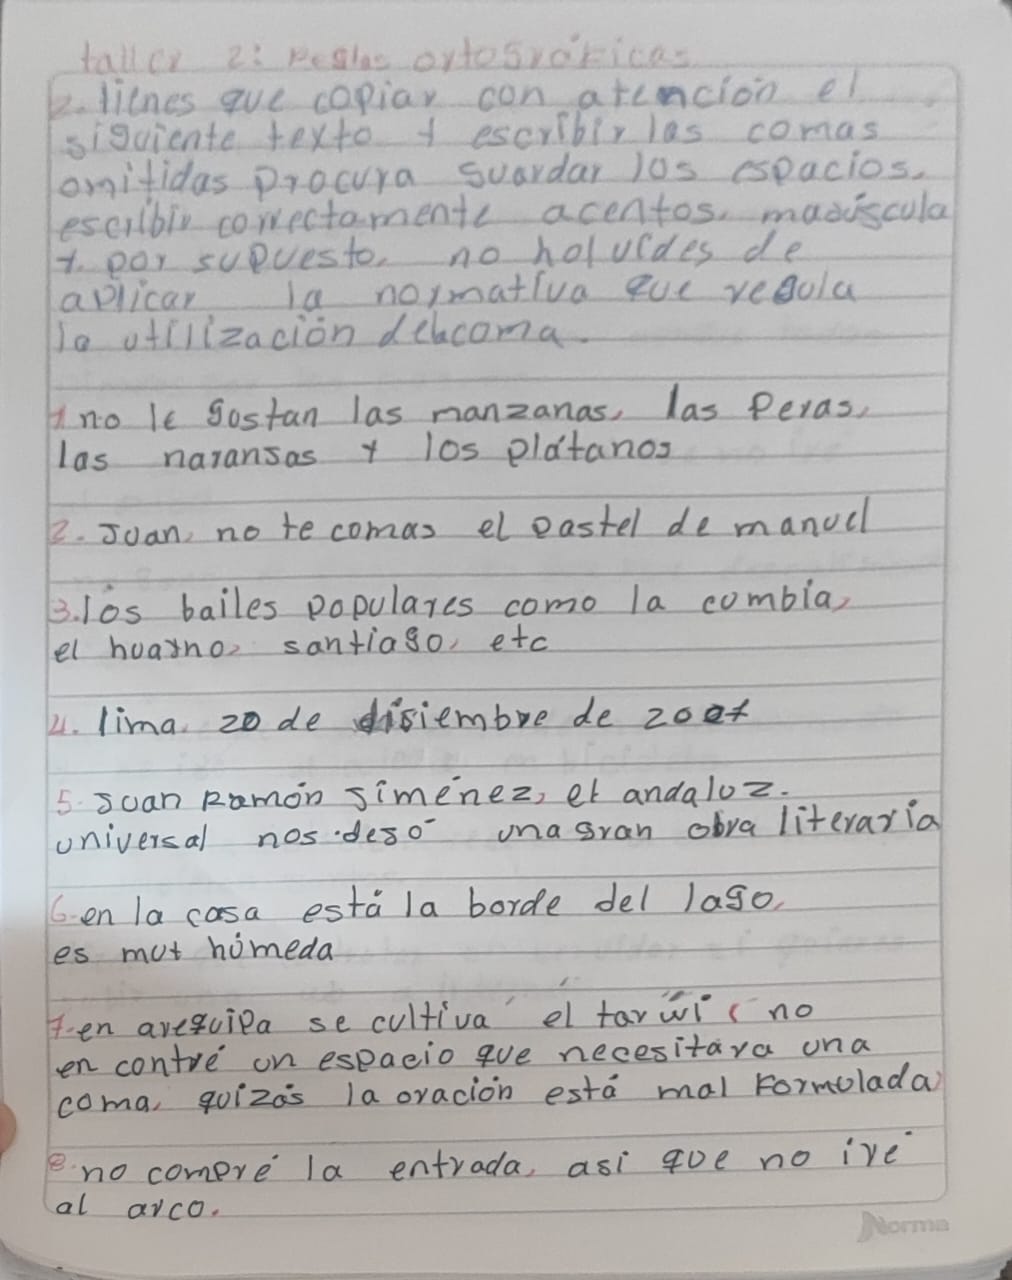 taller 2: Reglas ortográficas
2. tienes que copiar con atención el
siguiente texto y escribir las comas
omitidas procura guardar los espacios.
escribir correctamente acentos, mayúscula
y. por supuesto, no holvides de
aplicar la normativa que regula
la utilización delacoma.
1 no le gustan las manzanas, las Peras,
las naranjas y los plátanos
2. Juan, no te comas el pastel de manuel
3. los bailes populares como la cumbia,
el huayno, santiago, etc
4. lima, 20 de disiembre de 2007
5. Juan Ramón Jiménez, el andaluz.
universal nos dejó una gran obra literaria
6. en la casa está la borde del lago,
es muy húmeda
7. en arequipa se cultiva el tarwi ( no
en contré un espacio que necesitara una
coma, quizás la oración está mal Formulada)
8. no compré la entrada, asi que no iré
al arco.
Norma